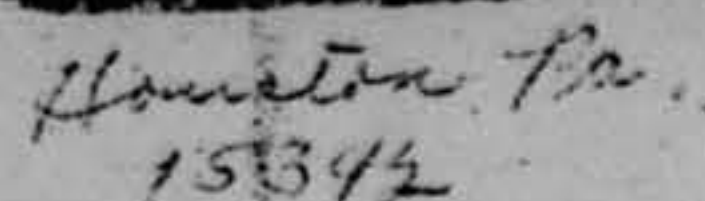 Houston Pa.
15342